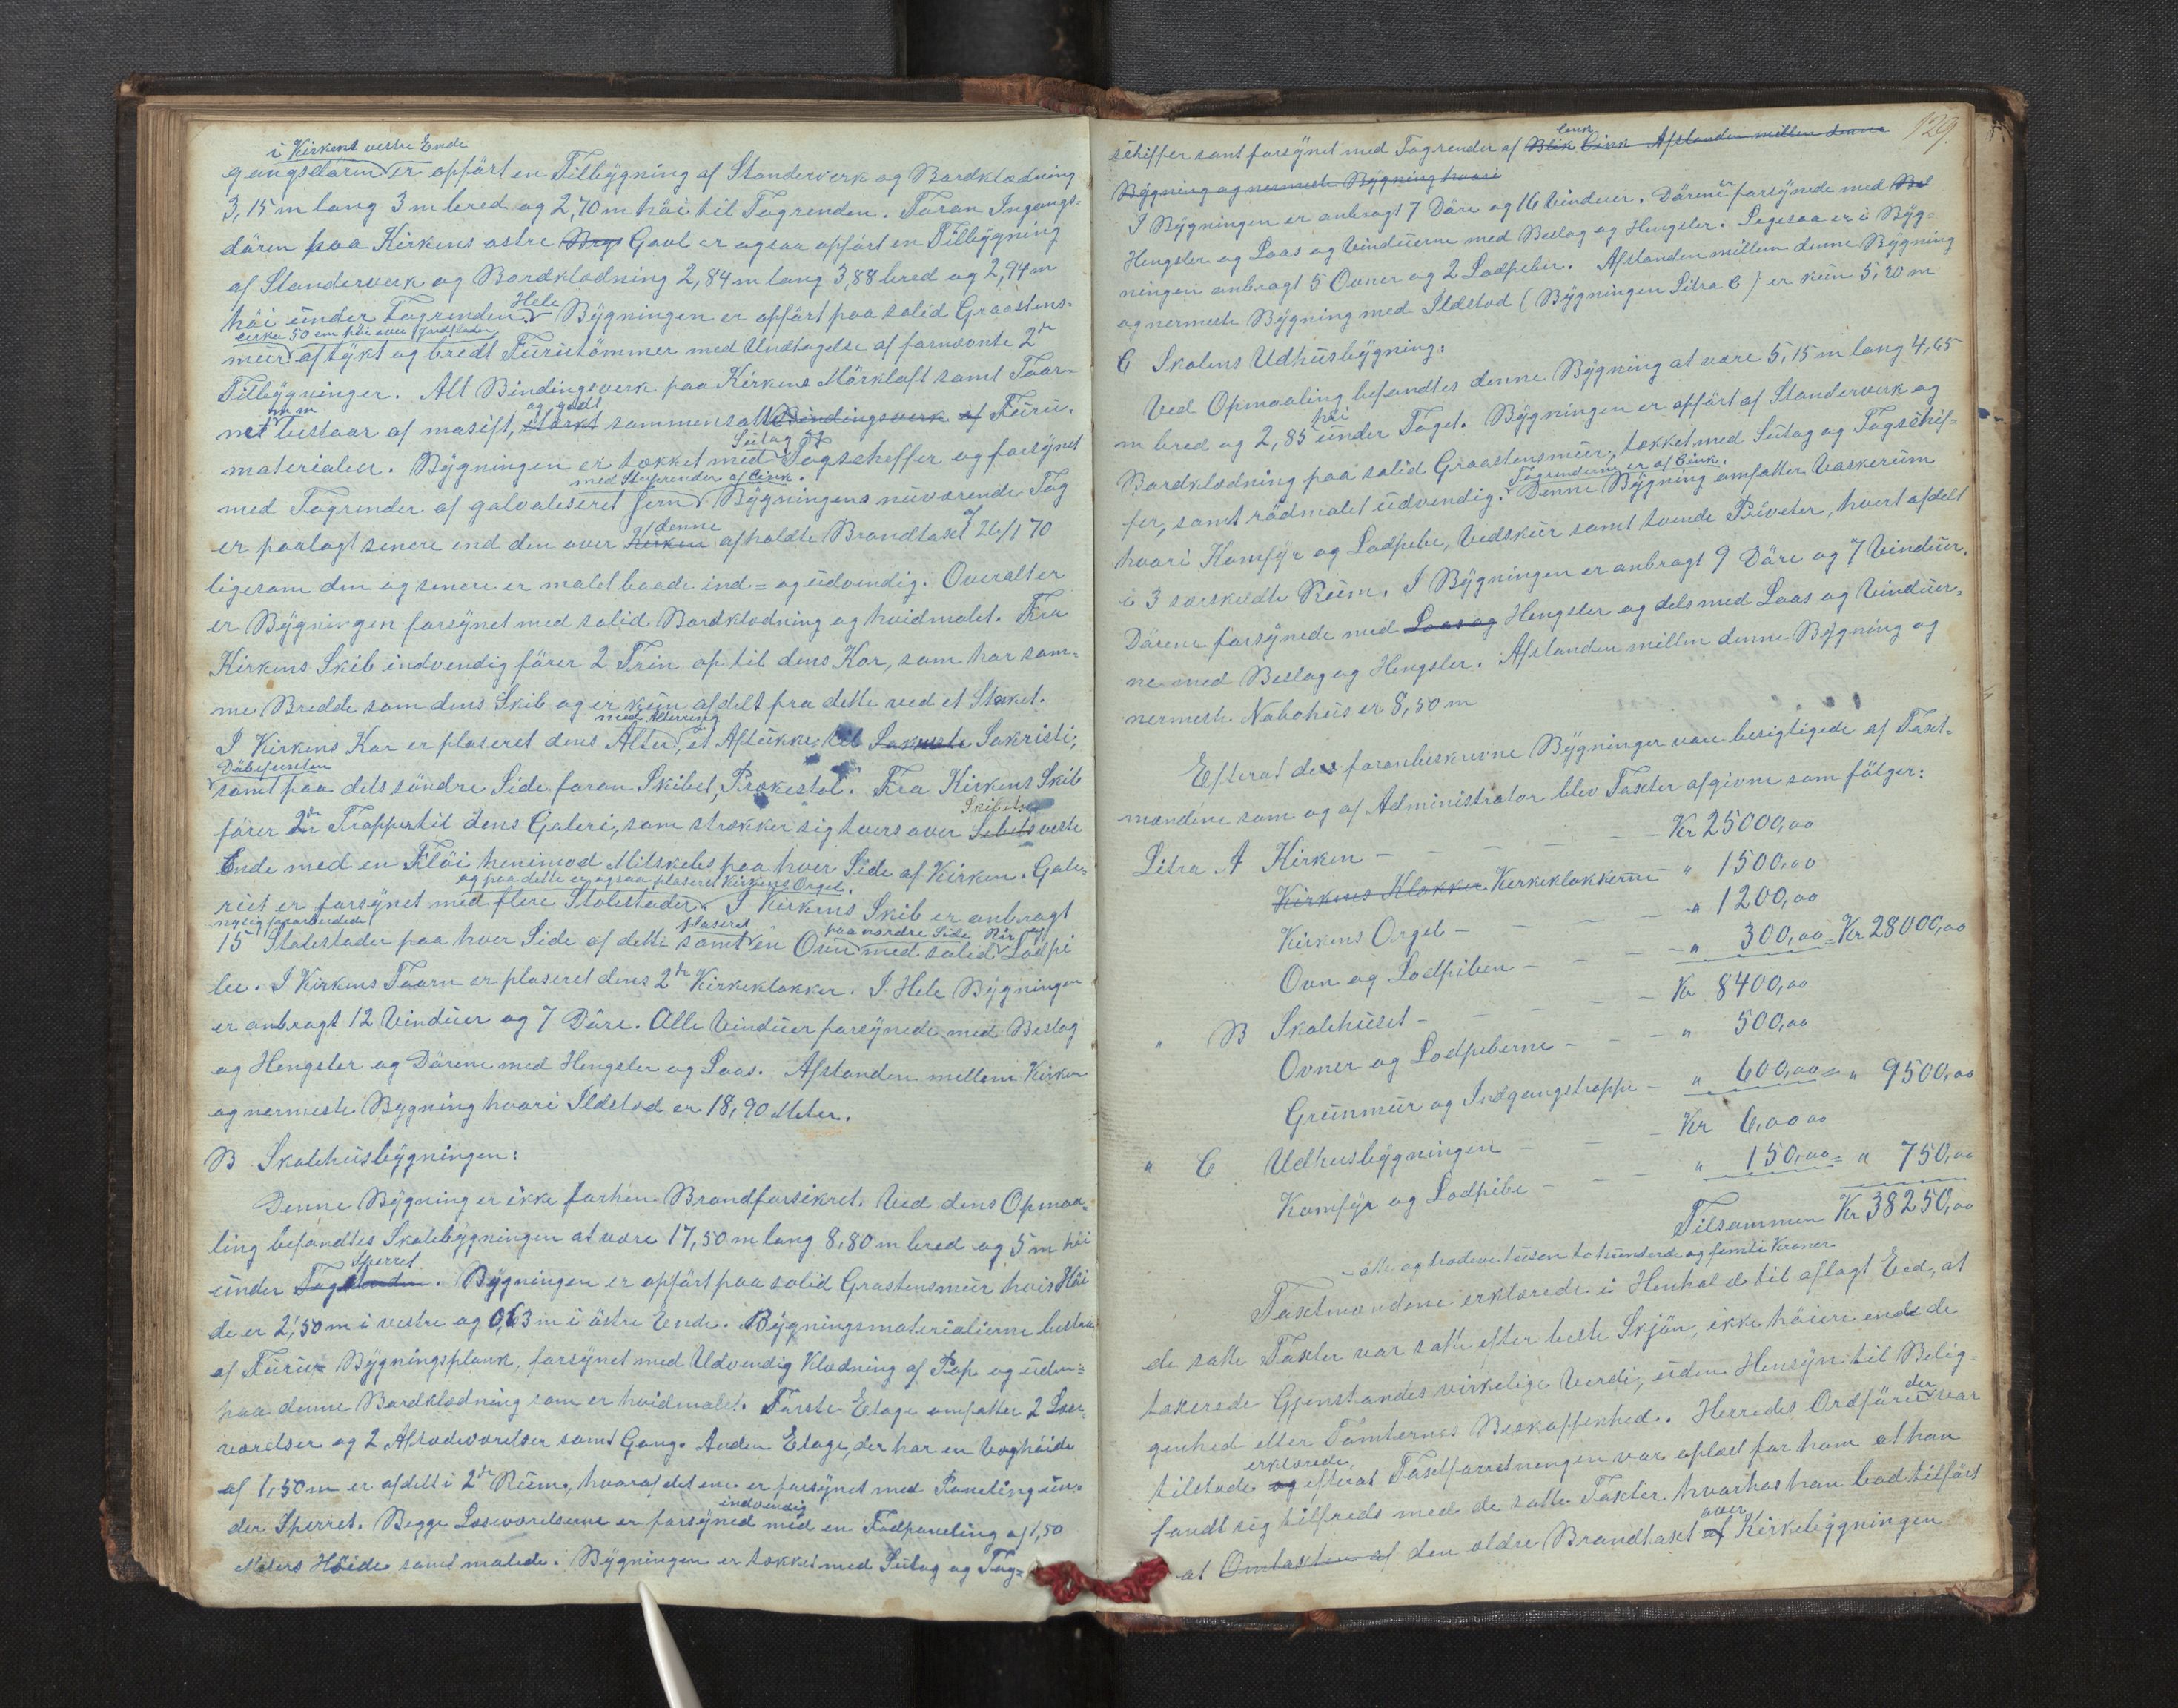 i Kirkens vestre Ende
gangsdören er opfört en Tilbygning af Standerverk og Bordklædning
3,15 m lang 3 m bred og 2,70 m höi til Tagrenden. Foran Ingangs-
dören paa Kirkens östre Gavl er ogsaa opfört en Tilbygning
af Standerverk og Bordklædning 2,84 m lang 3,88 bred og 2,94 m
höi under Tagrenden. Hele Bygningen er opfört paa solid Graastens-
cirka 50 cm höi over Jordfladen
mur af tykt og bredt Furutömmer med Undtagelse af fornævnte 2de
Tilbygninger. Alt Bindingsverk paa Kirkens Mörkloft samt Taar-
net bestaar af masift, stærkt og godt sammensatte Bindingsverk af Furu-
materialier. Bygningen er tækket med Sutag og Tagscheffer og forsynet
med Tagrender af galvaliseret Jern med Steprender af Cink. Bygningens nuværende Tag
er paalagt senere end den over Kirken denne afholdte Brandtaxt af 26/1 70
ligesom den og senere er malet baade ind= og udvendig. Overalt er
er Bygningen forsynet med solid Bordklædning og hvidmalet. Fra
Kirkens Skib indvendig förer 2 Trin op til dens Kor, som har sam-
me Bredde som dens Skib og er kun afdelt fra dette ved et Staket.
I Kirkens Kor er plaseret dens Alter med Altering, et Aflukke til Sakriste Sakristi,
Döbefunten
samt paa dets söndre Side foran Skibet, Prækestol. Fra Kirkens Skib
förer 2de Trapper til dens Galeri, som strækker sig tvers over Skibets vestre
Ende med en Flöi henimod Mitskebs paa hver Side af Kirken. Gale-
og paa dette er ogsaa plaseret Kirkens Orgel.
riet er forsynet med flere Stolestader. I Kirkens Skib er anbragt
nylig forarbeidede plaseret paa nordre Side Rör og
15 Stolestader paa hver Side af dette samt en Ovn med solid Lodpi
be. I Kirkens Taarn er plaseret dens 2de Kirkeklokker. I Hele Bygningen
er anbragt 12 Vinduer og 7 Döre. Alle Vinduer forsynede med Beslag
og Hengsler og Dörene med Hengsler og Laas. Afstanden mellem Kirken
og nermeste Bygning hvori Ildsted er 18,90 Meter.
B Skolehusbygningen:
Denne Bygning er ikke forhen Brandforsikret. Ved dens Opmaa-
ling befandtes Skolebygningen at være 17,50 m lang 8,80 m bred og 5 m höi
under Sperret. Bygningen er opfört paa solid Grastensmur hvis Höi
de er 2,50 m i vestre og 0,63 m i östre Ende. Bygningsmaterialierne bestaa
af Furu= Bygningsplank, forsynet med Udvendig Klædning af Pap og uden-
paa denne Bordklædning som er hvidmalet. Förste Etage omfatter 2 Læse
værelser og 2 Afklædeværelser samt Gang. Anden Etage, der har en Væghöide
af 1,50 m er afdelt i 2de Rum, hvoraf det ene er forsynet med Paneling un-
der Sperret. Begge Læseværelserne er forsyned indvendig med en Fodpaneling af 1,50
Meters Höide samt malede. Bygningen er tækket med Sutag og Tag=
129.
schiffer samt forsynet med Tagrender af Blik Cink Afstanden mellem denne
Bygning og nermeste Bygning hvori
I Bygningen er anbragt 7 Döre og 16 Vinduer. Dörene er forsynede med Bes
Hengsler og Laas og Vinduerne med Beslag og Hengsler. Ligesaa er i Byg-
ningen anbragt 5 Ovner og 2 Lodpiber. Afstanden mellem denne Bygning
og nermeste Bygning med Ildsted (Bygningen Litra C) er kun 5,20 m
C Skolens Udhusbygning:
Ved Opmaaling befandtes denne Bygning at være 5,15 m lang 4,65
m bred og 2,85 höi under Taget. Bygningen er opfört af Standerverk og
Bordklædning paa solid Graastensmur, tækket med Sutag og Tagschif-
fer, samt rödmalet udvendig. Tagrenderne er af Cink. Denne Bygning omfatter Vaskerum
hvori Komfyr og Lodpibe, Vedskur samt tvende Priveter, hvert afdelt
i 3 særskildte Rum. I Bygningen er anbragt 9 Döre og 7 Vinduer.
Dörene forsynede med Laas og Hengsler og dels med Laas og Vinduer-
ne med Beslag og Hengsler. Afstanden mellem denne Bygning og
nermeste Nabohus er 8,50 m
Efterat de foranbeskrevne Bygninger vare besigtigede af Taxt-
mændene som og af Administrator blev Taxter afgivne som fölger:
Litra A Kirken — — — Kr 25000,00
Kirkens Klokker Kerkeklokkerne " 1500,00
Kirkens Orgel — — — " 1200,00
Ovn og Lodpiben — — — " 300,00 = Kr 28000,00
" B Skolehuset — — — Kr 8400,00
Ovner og Lodpeberne — — — " 500,00
Grunmur og Indgangstrappe — " 600,00 = " 9500,00
" C Udhusbygningen — — — Kr 6,00 00
Komfyr og Lodpibe — — — " 150,00 = " 750,00
Tilsammen Kr 38250,00
— otte og tredeve tusen to hunderde og femti Kroner
Taxtmændene erklærede i Henhold til aflagt Eed, at
de satte Taxter var satte efter beste Skjön, ikke höiere end de
takserede Gjenstandes virkelige Verdi, uden Hensyn til Belig-
genhed eller Tomternes Beskaffenhed. Herredets Ordförer der var
tilstede og erklærede, efterat Taxtforretningen var oplæst for ham at han
fandt sig tilfreds med de satte Taxter hvorhos han bad tilfört
at Omtaxten af den ældre Brandtaxt af over Kirkebygningen